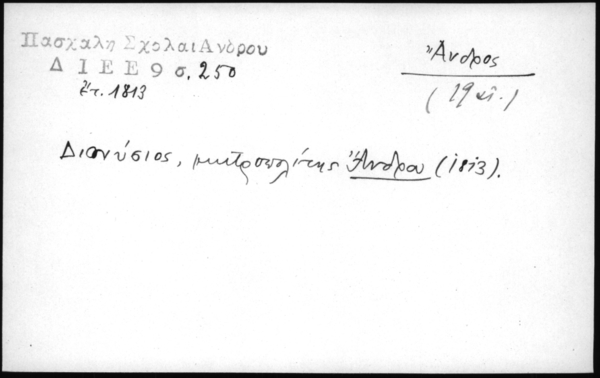 Πασχαλη Σχολαι Ανδρου
Δ Ι Ε Ε 9 σ. 250
ἔτ. 1813
Ἄνδρος
(19 αἰ.)
Διονύσιος, μητροπολίτης Ἄνδρου (1813).